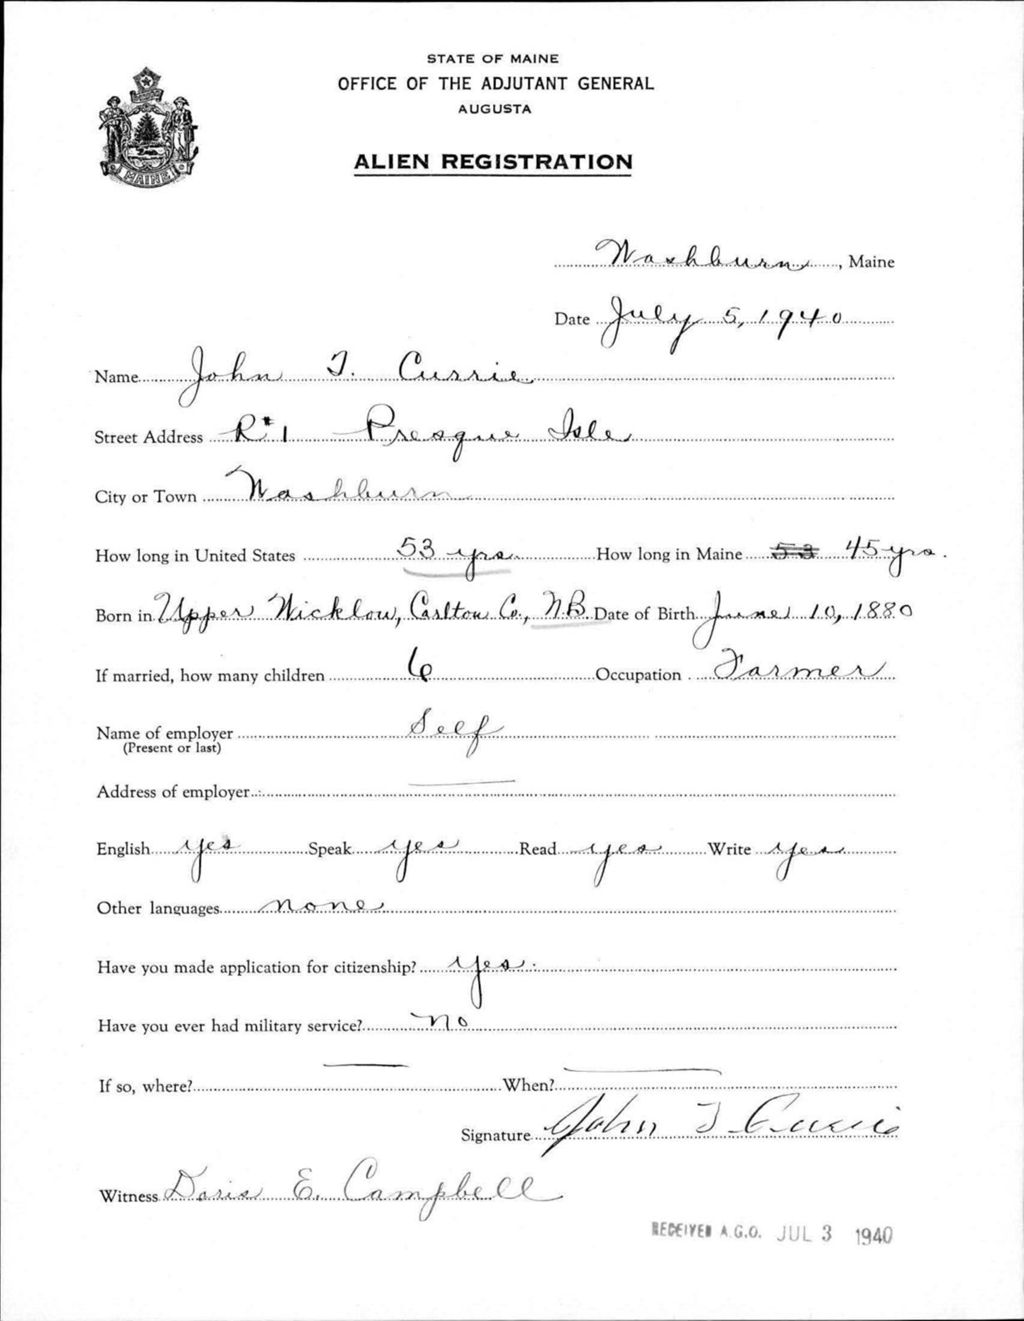 STATE OF MAINE
OFFICE OF THE ADJUTANT GENERAL
AUGUSTA
ALIEN REGISTRATION
MAINE
Washburn, Maine
Date July 5, 1940
Name John T. Currie
Street Address R#1 Presque Isle
City or Town Washburn
How long in United States 53 yrs. How long in Maine 53 45 yrs.
Born in Upper Wicklow, Carlton Co., N.B. Date of Birth June 10, 1880
If married, how many children 6 Occupation Farmer
Name of employer Self
(Present or last)
Address of employer
English yes Speak yes Read yes Write yes
Other languages none
Have you made application for citizenship? yes.
Have you ever had military service? no
If so, where? When?
Signature John T Currie
Witness Doris E. Campbell
RECEIVED A.G.O. JUL 3 1940